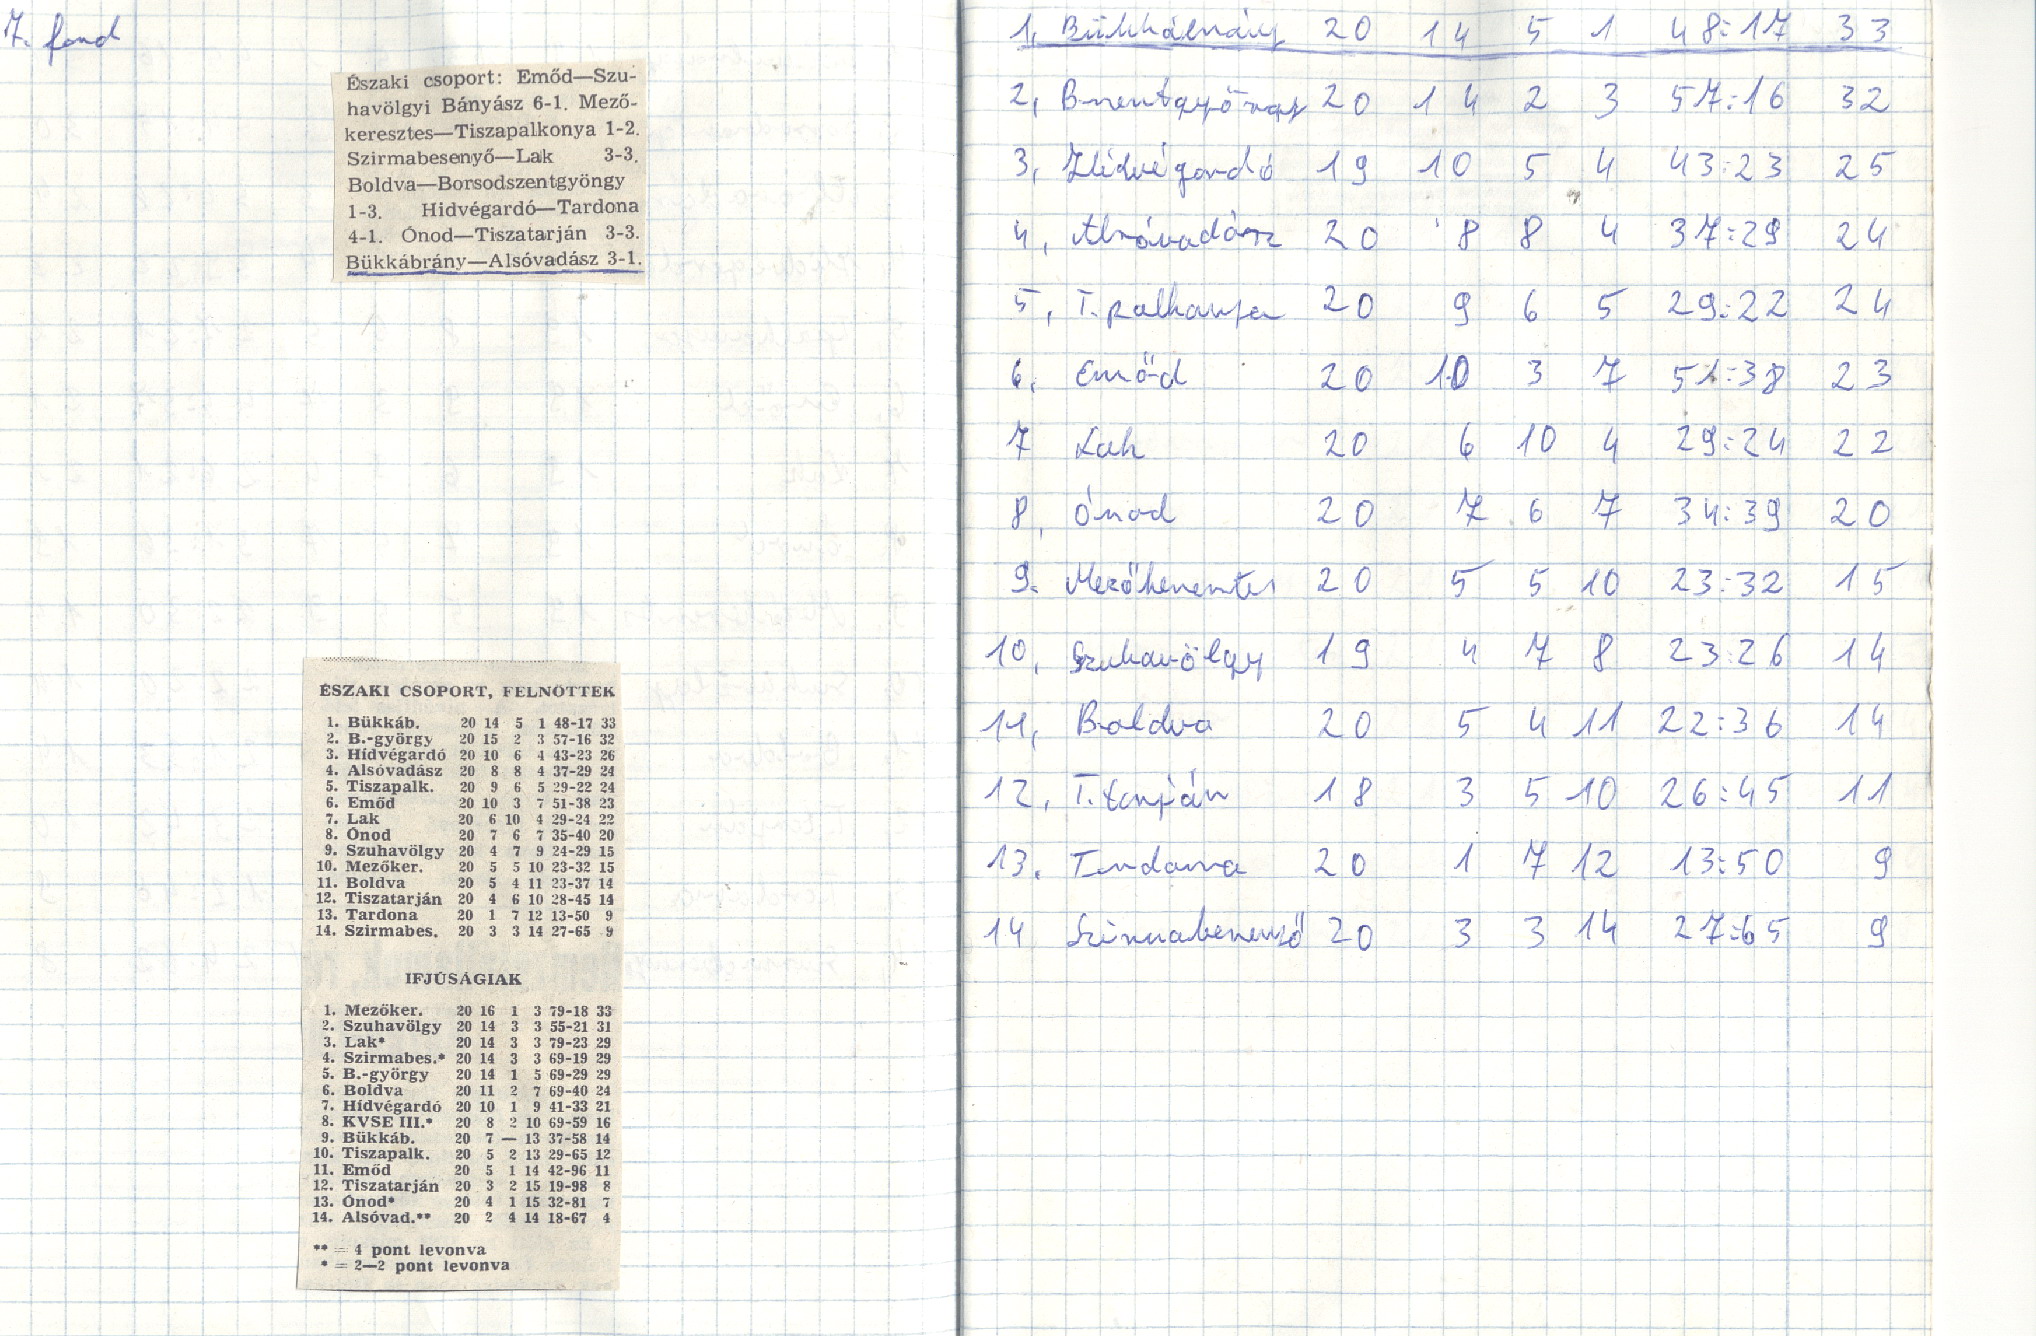 7. ford
Északi csoport: Emőd—Szu-
havölgyi Bányász 6-1. Mező-
keresztes—Tiszapalkonya 1-2.
Szirmabesenyő—Lak 3-3.
Boldva—Borsodszentgyöngy
1-3. Hidvégardó—Tardona
4-1. Ónod—Tiszatarján 3-3.
Bükkábrány—Alsóvadász 3-1.
ÉSZAKI CSOPORT, FELNŐTTEK
1. Bükkáb. 20 14 5 1 48-17 33
2. B.-györgy 20 15 2 3 57-16 32
3. Hídvégardó 20 10 6 4 43-23 26
4. Alsóvadász 20 8 8 4 37-29 24
5. Tiszapalk. 20 9 6 5 29-22 24
6. Emőd 20 10 3 7 51-38 23
7. Lak 20 6 10 4 29-24 22
8. Ónod 20 7 6 7 35-40 20
9. Szuhavölgy 20 4 7 9 24-29 15
10. Mezőker. 20 5 5 10 23-32 15
11. Boldva 20 5 4 11 23-37 14
12. Tiszatarján 20 4 6 10 28-45 14
13. Tardona 20 1 7 12 13-50 9
14. Szirmabes. 20 3 3 14 27-65 9
IFJÚSÁGIAK
1. Mezőker. 20 16 1 3 79-18 33
2. Szuhavölgy 20 14 3 3 55-21 31
3. Lak* 20 14 3 3 79-23 29
4. Szirmabes.* 20 14 3 3 69-19 29
5. B.-györgy 20 14 1 5 69-29 29
6. Boldva 20 11 2 7 69-40 24
7. Hídvégardó 20 10 1 9 41-33 21
8. KVSE III.* 20 8 2 10 69-59 16
9. Bükkáb. 20 7 — 13 37-58 14
10. Tiszapalk. 20 5 2 13 29-65 12
11. Emőd 20 5 1 14 42-96 11
12. Tiszatarján 20 3 2 15 19-98 8
13. Ónod* 20 4 1 15 32-81 7
14. Alsóvad.** 20 2 4 14 18-67 4
** = 4 pont levonva
* = 2—2 pont levonva
1, Bükkábrány 20 14 5 1 48:17 33
2, B-szentgyörgy 20 14 2 3 57:16 32
3, Hidvégardó 19 10 5 4 43:23 25
4, Alsóvadász 20 8 8 4 37:29 24
5, T.palkonya 20 9 6 5 29:22 24
6, Emőd 20 10 3 7 51:38 23
7 Lak 20 6 10 4 29:24 22
8, Ónod 20 7 6 7 34:39 20
9. Mezőkeresztes 20 5 5 10 23:32 15
10, Szuhavölgy 19 4 7 8 23:26 14
11, Boldva 20 5 4 11 22:36 14
12, T.tarján 18 3 5 10 26:45 11
13. Tardona 20 1 7 12 13:50 9
14 Szirmabesenyő 20 3 3 14 27:65 9